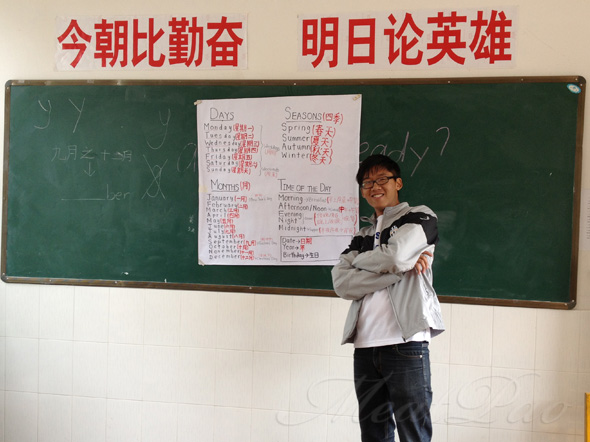 今朝比勤奋 明日论英雄
y y
y
九月之十二月
ber
8
eady?
DAYS
Monday(星期一)
Tuesday(星期二)
Wednesday(星期三)
Thursday(星期四)
Friday(星期五)
Saturday(星期六)
Sunday(星期天)
SEASONS(四季)
Spring(春天)
Summer(夏天)
Autumn(秋天)
Winter(冬天)
MONTHS(月)
January(一月)
February(二月)
March(三月)
April(四月)
May(五月)
June(六月)
July(七月)
August(八月)
September(九月)
October(十月)
November(十一月)
December(十二月)
TIME OF THE DAY
Morning
Afternoon/Noon
Evening
Night
Midnight
Date→日期
Year→年
Birthday→生日
MeatPao